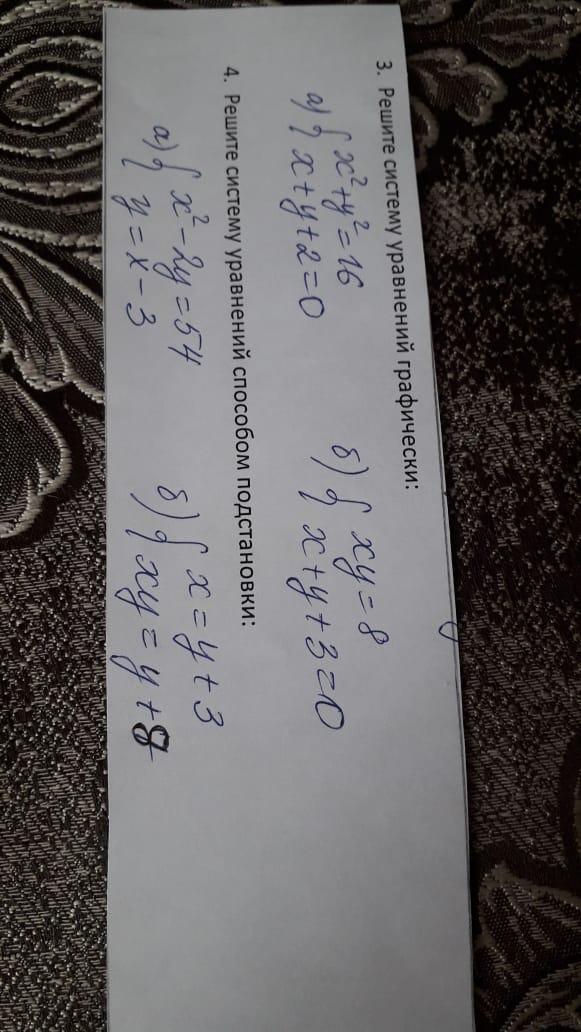 3. Решите систему уравнений графически:
а) { x² + y² = 16
x + y + 2 = 0
б) { xy = 8
x + y + 3 = 0
4. Решите систему уравнений способом подстановки:
а) { x² - 2y = 54
y = x - 3
б) { x = y + 3
xy = y + 8